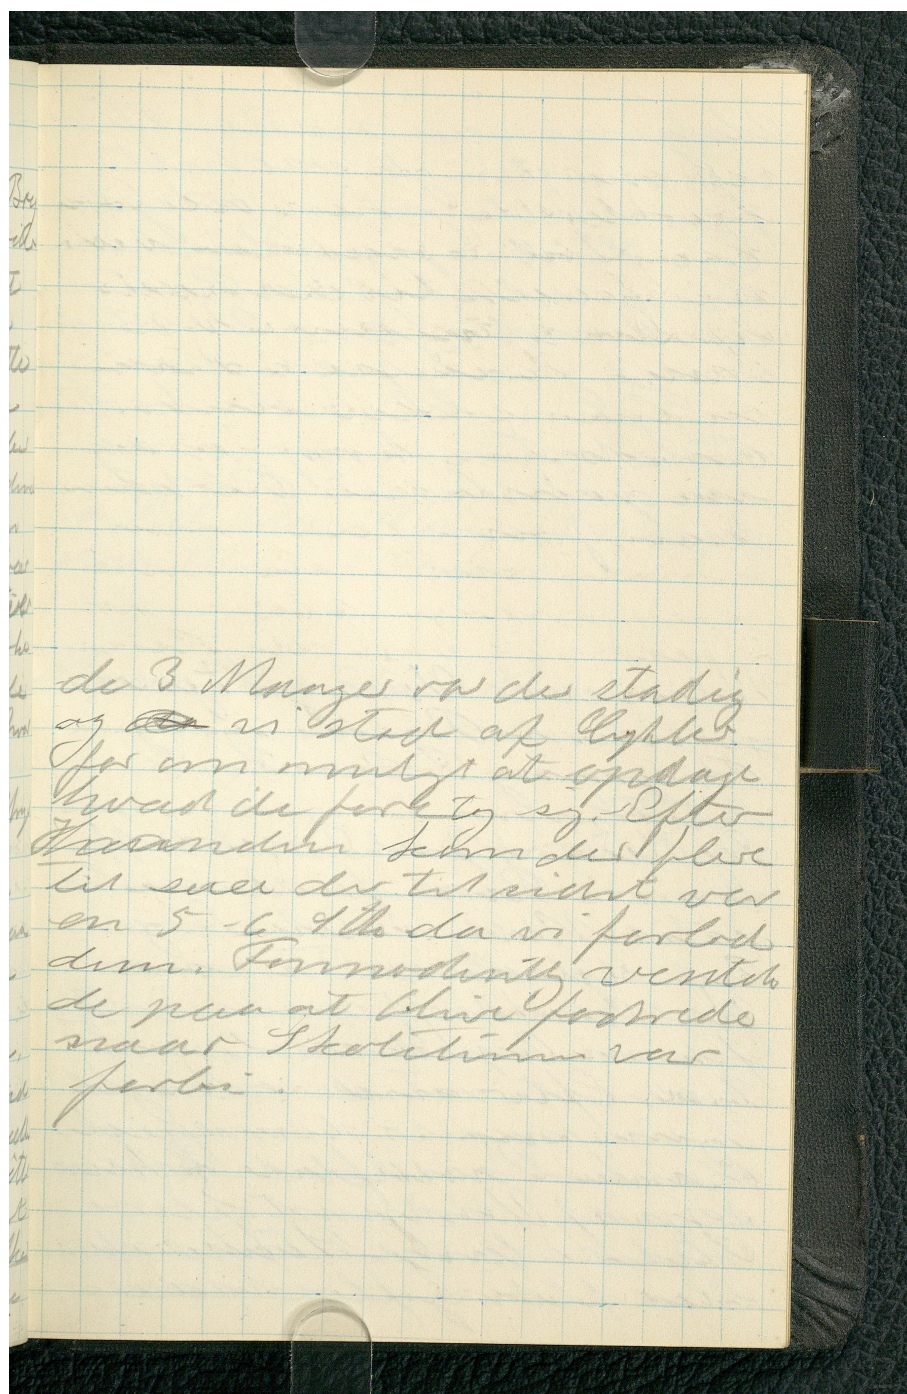 de 3 Maager var der stadig
og vi stod af Cykler
for om muligt at opdage
hvad de foretog sig. Efter
Haanden kom der flere
til saa der til sidst var
en 5-6 Stk da vi forlod
dem. Formodentlig ventede
de paa at blive fodrede
naar Skoletimen var
forbi.